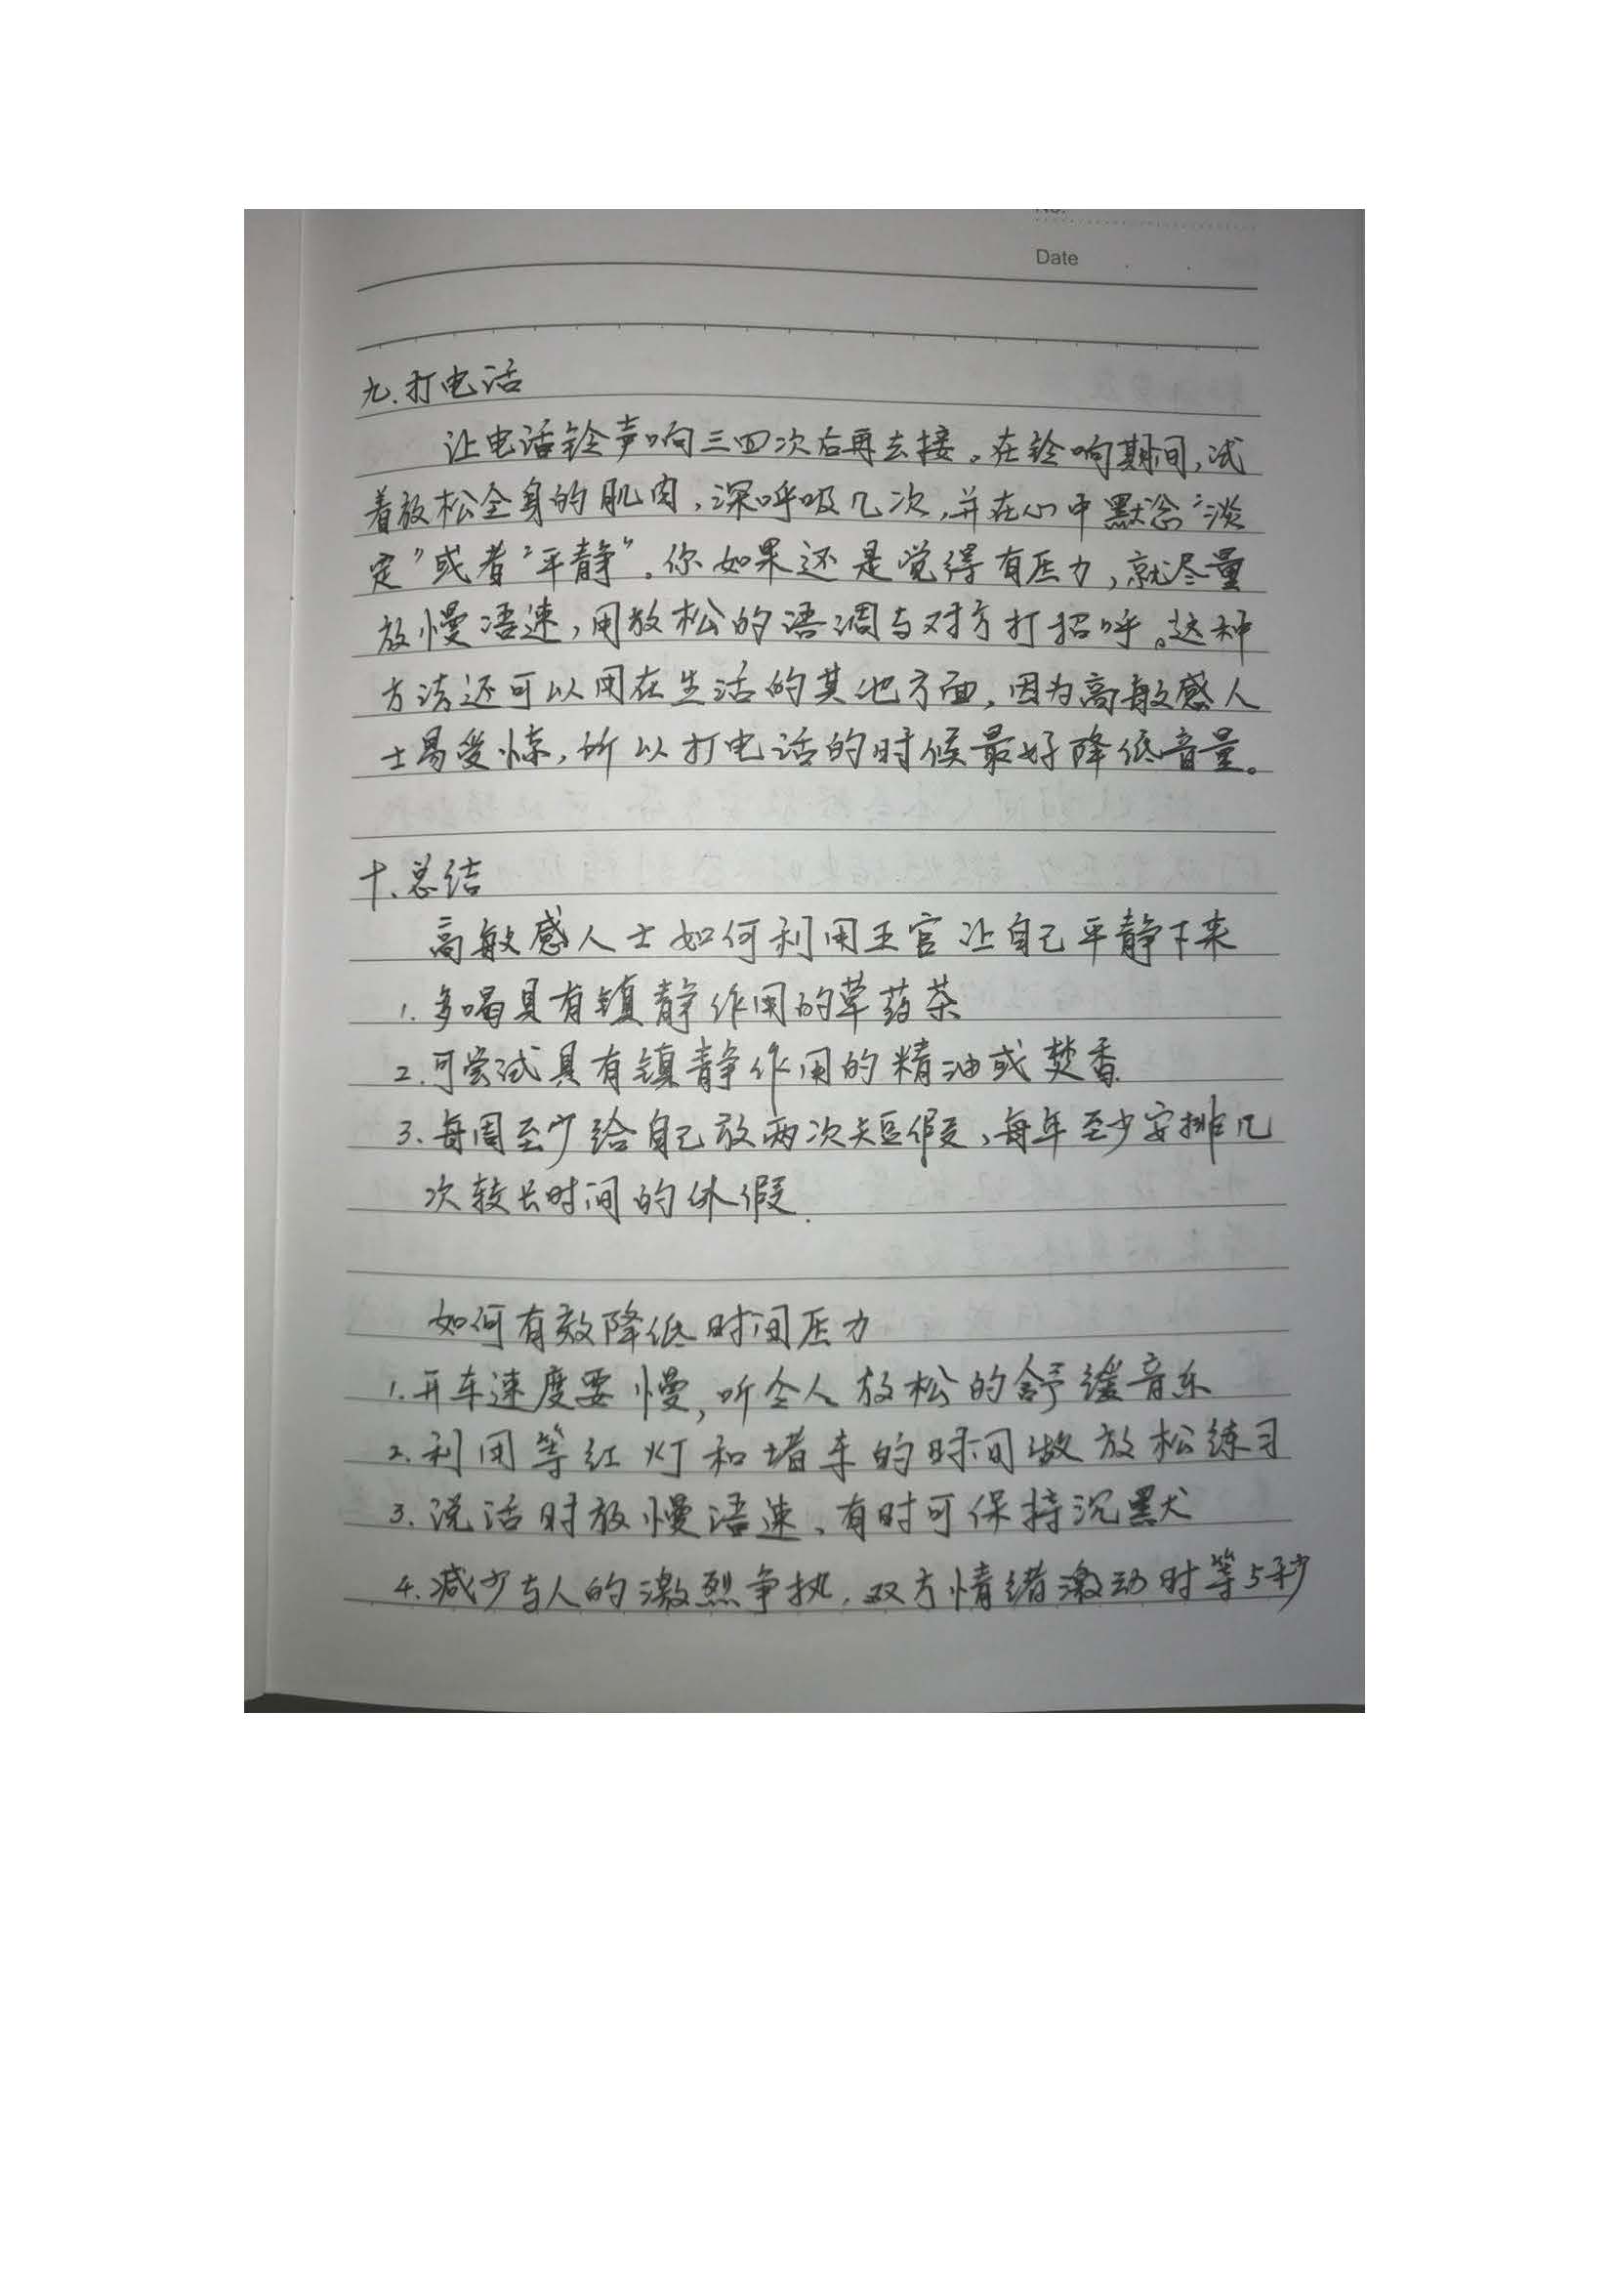 Date
九.打电话
让电话铃声响三四次后再去接。在铃响期间,试
着放松全身的肌肉,深呼吸几次,并在心中默念“淡
定”或者“平静”。你如果还是觉得有压力,就尽量
放慢语速,用放松的语调与对方打招呼。这种
方法还可以用在生活的其他方面,因为高敏感人
士易受惊,所以打电话的时候最好降低音量。
十.总结
高敏感人士如何利用五官让自己平静下来
1.多喝具有镇静作用的草药茶
2.可尝试具有镇静作用的精油或焚香.
3.每周至少给自己放两次短假,每年至少安排几
次较长时间的休假.
如何有效降低时间压力
1.开车速度要慢,听令人放松的舒缓音乐
2.利用等红灯和堵车的时间做放松练习
3.说话时放慢语速,有时可保持沉默
4.减少与人的激烈争执,双方情绪激动时等5秒